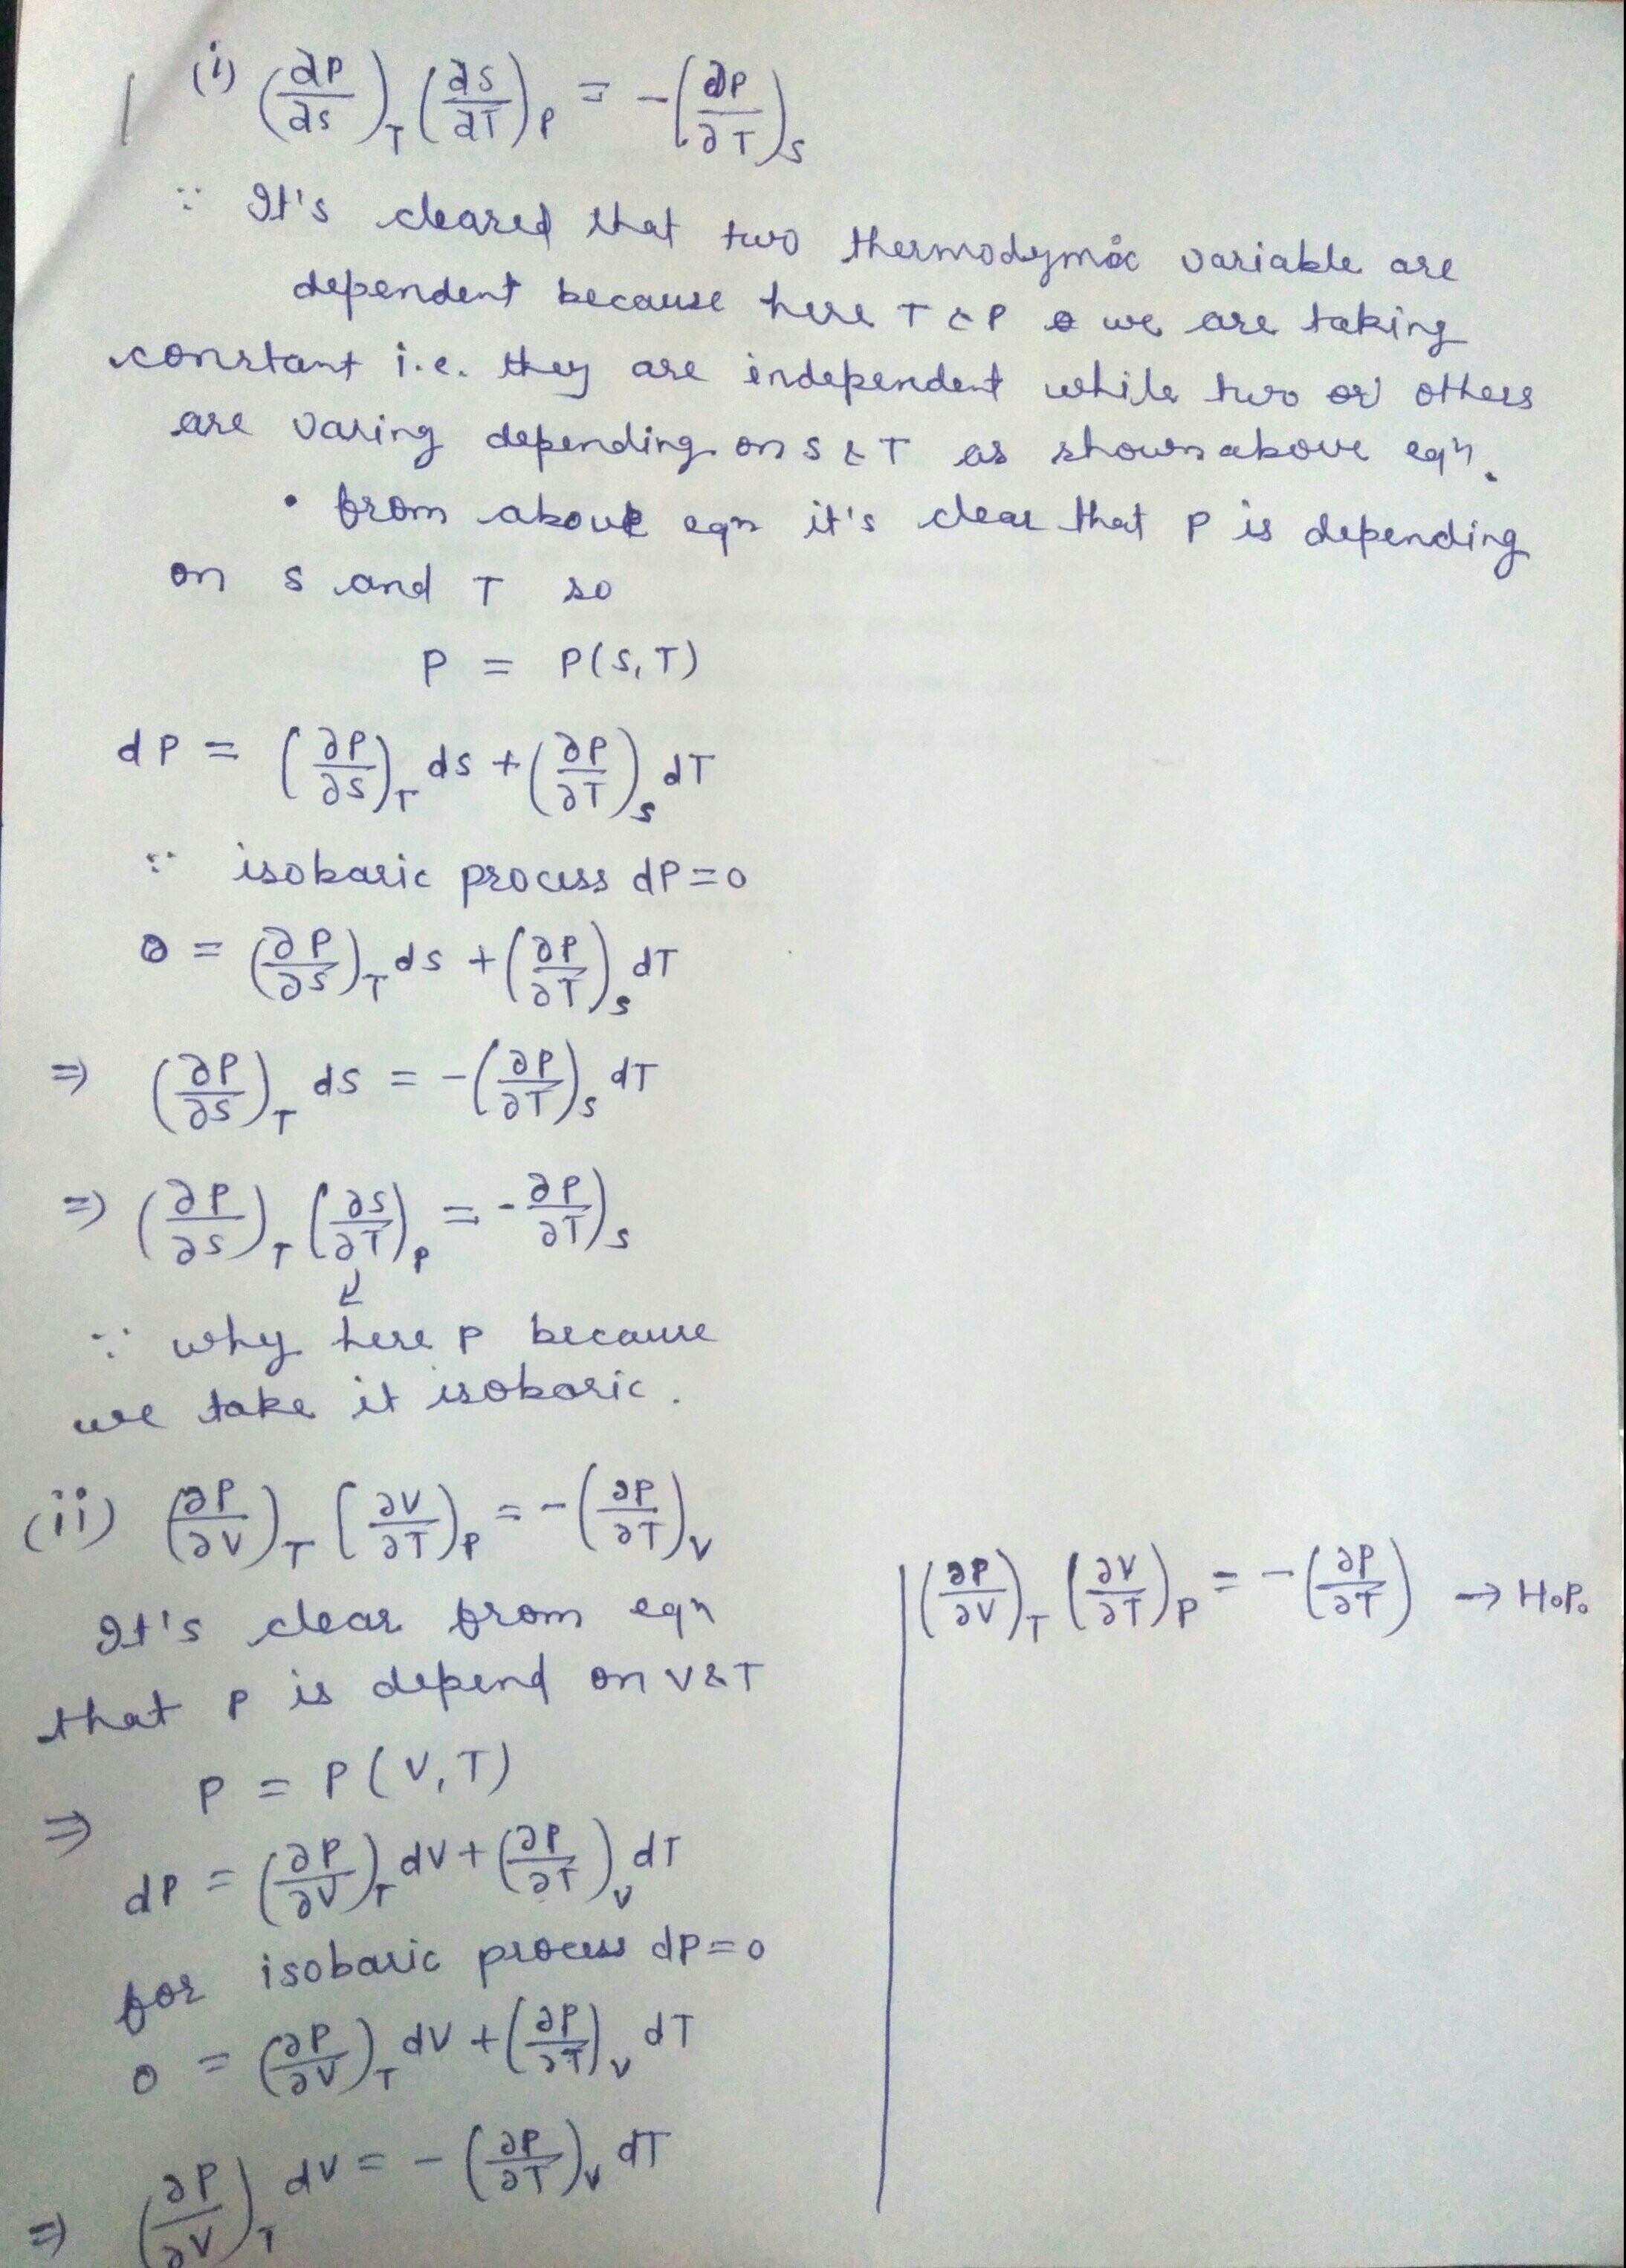 (i) (∂P/∂S)_T (∂S/∂T)_P = -(∂P/∂T)_S
∵ It's cleared that two thermodymic variable are
dependent because here T & P we are taking
constant i.e. they are independent while two or others
are varing depending on S & T as shown above eqn.
• from above eqn it's clear that P is depending
on S and T so
P = P(S, T)
dP = (∂P/∂S)_T dS + (∂P/∂T)_S dT
∵ isobaric process dP = 0
0 = (∂P/∂S)_T dS + (∂P/∂T)_S dT
⇒ (∂P/∂S)_T dS = -(∂P/∂T)_S dT
⇒ (∂P/∂S)_T (∂S/∂T)_P = -∂P/∂T)_S
∵ why here P because
we take it isobaric.
(ii) (∂P/∂V)_T (∂V/∂T)_P = -(∂P/∂T)_V
It's clear from eqn
that P is depend on V & T
P = P(V, T)
⇒
dP = (∂P/∂V)_T dV + (∂P/∂T)_V dT
for isobaric process dP = 0
0 = (∂P/∂V)_T dV + (∂P/∂T)_V dT
⇒ (∂P/∂V)_T dV = -(∂P/∂T)_V dT
(∂P/∂V)_T (∂V/∂T)_P = -(∂P/∂T) → H.P.